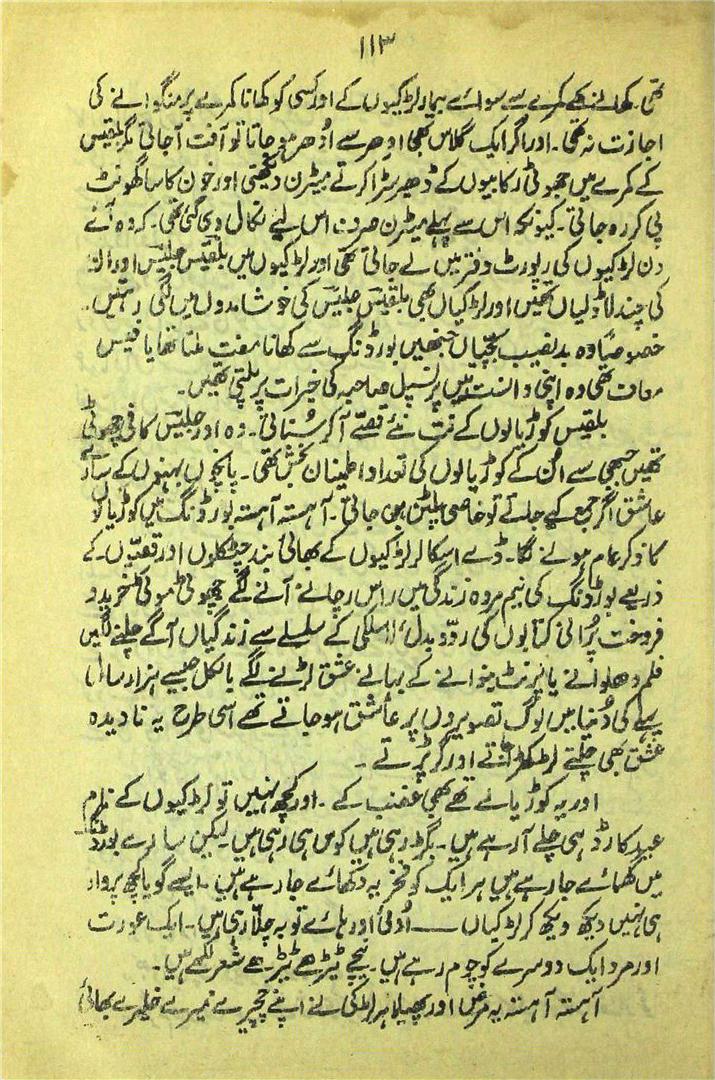 ۱۱۳
تھی۔ کھانے کے کمرے سے سوائے بیمار لڑکیوں کے اور کسی کو کھانا کمرے پر منگوانے کی
اجازت نہ تھی۔ اور اگر ایک گلاس بھی ادھر سے اُدھر ہو جاتا تو آفت آ جاتی مگر بلقیس
کے کمرے میں جھوٹی رکابیوں کے ڈھیر سڑا کرتے میٹرن دیکھتی اور خون کا سا گھونٹ
پی کر رہ جاتی۔ کیونکہ اس سے پہلے میٹرن صرف اس لیے نکال دی گئی تھی۔ کہ وہ آئے
دن لڑکیوں کی رپورٹ دفتر میں لے جاتی تھی اور لڑکیوں میں بلقیس جلیس اور ان
کی چند لاڈلیاں تھیں اور لڑکیاں بھی بلقیس جلیس کی خوشامدوں میں لگی رہتیں۔
خصوصاً وہ بدنصیب بچیاں جنھیں بورڈنگ سے کھانا مفت ملتا تھا یا فیس
معاف تھی وہ اپنی دانست میں پرنسپل صاحبہ کی خیرات پر پلتی تھیں۔
بلقیس کوڑیالوں کے نت نئے قصّے آ کر سُناتی۔ وہ اور جلیس کافی چھوٹی
تھیں جبھی سے اُن کے کوڑیالوں کی تعداد اطمینان بخش تھی۔ پانچوں بہنوں کے سارے
عاشق اگر جمع کیے جاتے تو خاصی پلٹن بن جاتی۔ آہستہ آہستہ بورڈنگ میں کوڑیالوں
کا ذکر عام ہونے لگا۔ ڈے اسکالر لڑکیوں کے بھائی بند چٹکلوں اور قصّوں کے
ذریعے بورڈنگ کی نیم مردہ زندگی میں راس رچانے آنے لگے چھوٹی موٹی خرید و
فروخت پُرانی کتابوں کی ردّ و بدل، سلکی کے سلسلے سے زندگیاں آگے چلنے لگیں
فلم دھلوانے یا پرنٹ بنوانے کے بہانے عشق لڑنے لگے بالکل جیسے ہزار سال
پہلے کی دُنیا میں لوگ تصویروں پر عاشق ہو جاتے تھے اسی طرح یہ نادیدہ
عشق بھی چلتے لڑکھڑاتے اور گر پڑتے ۔
اور یہ کوڑیالے تھے بھی غضب کے ۔ اور کچھ نہیں تو لڑکیوں کے نام
عید کارڈ ہی چلے آ رہے ہیں۔ بگڑ رہی ہیں کوس ہی رہی ہیں۔ لیکن سارے بورڈنگ
میں گھمائے جا رہے ہیں ہر ایک کو فخریہ دکھائے جا رہے ہیں۔ ایسے گویا کچھ پروا
ہی نہیں دیکھ دیکھ کر لڑکیاں —— اُوئی اور ہائے توبہ چلّا رہی ہیں۔ ایک عورت
اور مرد ایک دوسرے کو چوم رہے ہیں۔ نیچے ٹیڑھے ٹیڑھے شعر لکھے ہیں۔
آہستہ آہستہ یہ مرض اور پھیلا ہر لڑکی نے اپنے چچیرے ممیرے خلیرے بھائی